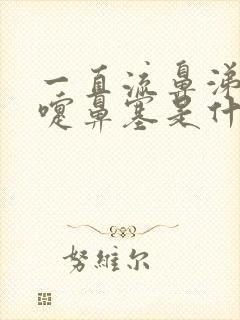 一直流鼻涕
嚏鼻塞是什
努維尔